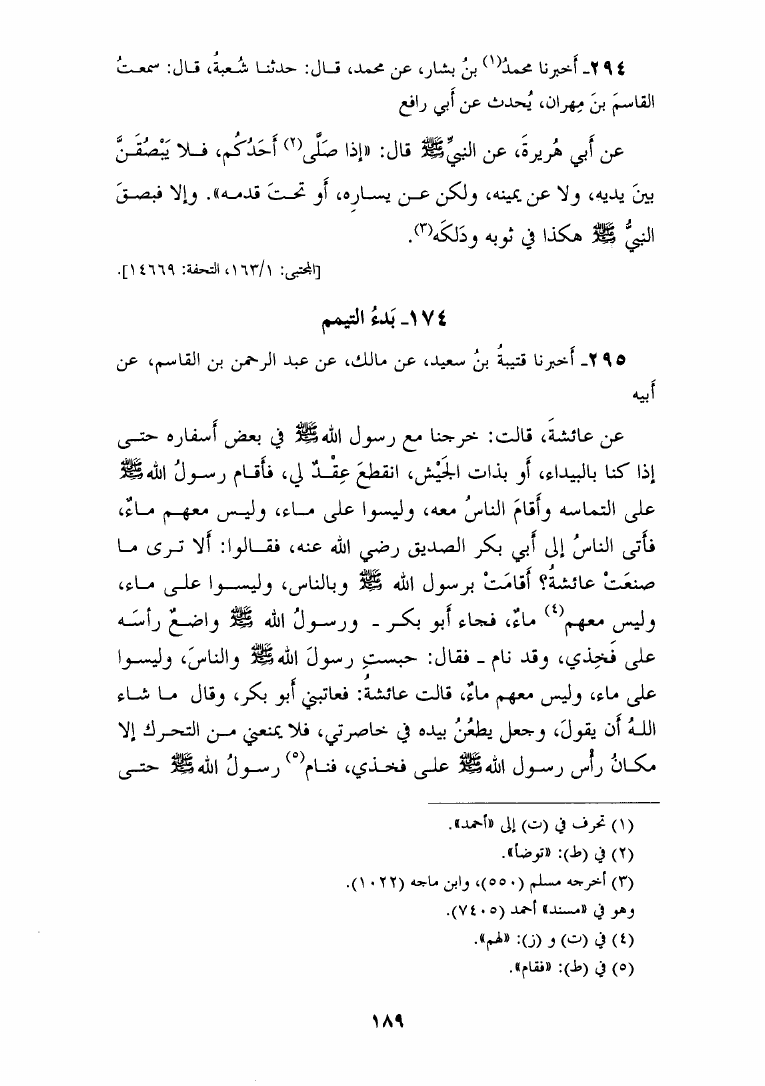 ٢٩٤ـ أخبرنا محمدُ(١) بنُ بشار، عن محمد، قال: حدثنا شُعبةُ، قال: سمعتُ
القاسمَ بنَ مِهران، يُحدث عن أبي رافع
عن أبي هُريرةَ، عن النبيِّ ﷺ قال: «إذا صَلَّى(٢) أحَدُكُم، فلا يَبْصُقَنَّ
بينَ يديه، ولا عن يمينه، ولكن عن يسارِه، أو تحتَ قدمه». وإلا فبصقَ
النبيُّ ﷺ هكذا في ثوبه ودَلكَه(٣).
[المجتبى: ١/١٦٣، التحفة: ١٤٦٦٩].
١٧٤ـ بَدءُ التيمم
٢٩٥ـ أخبرنا قتيبةُ بنُ سعيد، عن مالك، عن عبد الرحمن بن القاسم، عن
أبيه
عن عائشةَ، قالت: خرجنا مع رسول الله ﷺ في بعض أسفاره حتى
إذا كنا بالبيداء، أو بذات الجَيْش، انقطعَ عِقْدٌ لي، فأقام رسولُ الله ﷺ
على التماسه وأقامَ الناسُ معه، وليسوا على ماء، وليس معهم ماءٌ،
فأتى الناسُ إلى أبي بكر الصديق رضي الله عنه، فقالوا: ألا ترى ما
صنعَتْ عائشةُ؟ أقامَتْ برسول الله ﷺ وبالناس، وليسوا على ماء،
وليس معهم(٤) ماءٌ، فجاء أبو بكر ـ ورسولُ الله ﷺ واضعٌ رأسَه
على فَخِذي، وقد نام ـ فقال: حبستِ رسولَ الله ﷺ والناسَ، وليسوا
على ماء، وليس معهم ماءٌ، قالت عائشةُ: فعاتبني أبو بكر، وقال ما شاء
اللهُ أن يقولَ، وجعل يطعُنُ بيده في خاصرتي، فلا يمنعني من التحرك إلا
مكانُ رأس رسول الله ﷺ على فخذي، فنام(٥) رسولُ الله ﷺ حتى
(١) تحرف في (ت) إلى «أحمد».
(٢) في (ط): «توضأ».
(٣) أخرجه مسلم (٥٥٠)، وابن ماجه (١٠٢٢).
وهو في «مسند» أحمد (٧٤٠٥).
(٤) في (ت) و (ز): «لهم».
(٥) في (ط): «فقام».
١٨٩